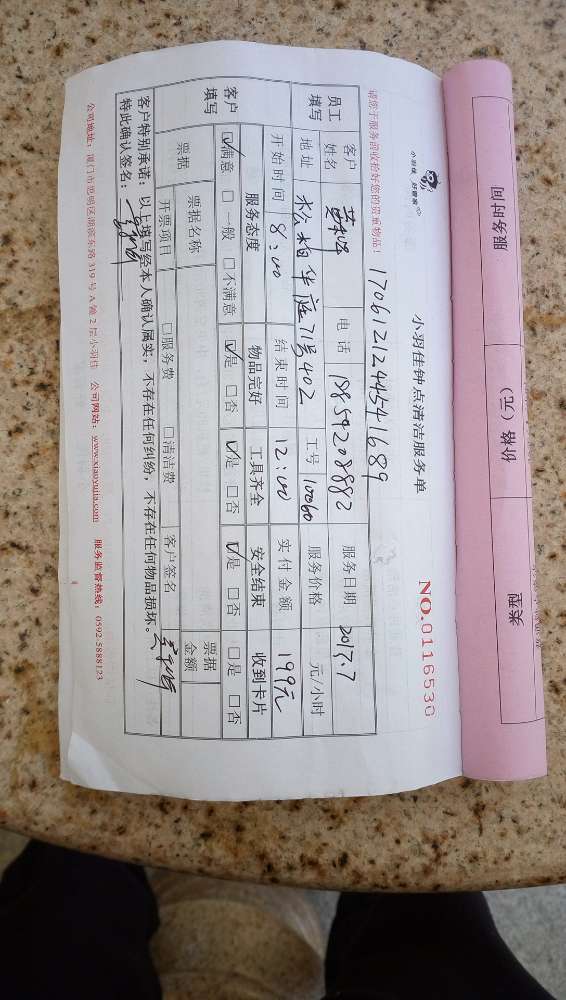 服务时间 价格（元） 类型
小羽佳 好管家
小羽佳钟点清洁服务单
NO.0116530
1706121244541689
请您于服务前收拾好您的贵重物品！
员工填写 客户姓名 电话 18859208882 服务日期 2017.7
地址 松柏华庭71号402 工号 10060 服务价格 元/小时
开始时间 8:00 结束时间 12:00 实付金额 199元
客户填写 服务态度 物品完好 工具齐全 安全结束 收到卡片
☑满意 □一般 □不满意 ☑是 □否 ☑是 □否 ☑是 □否 □是 □否
票据 票据名称 客户签名 票据金额
开票项目 □服务费 □清洁费
客户特别承诺：以上填写经本人确认属实，不存在任何纠纷，不存在任何物品损坏。
特此确认签名：
公司地址：厦门市思明区湖滨东路319号A幢2层小羽佳 公司网站：www.xiaoyujia.com 服务监督热线：0592-5888123